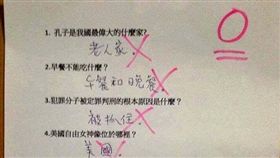 0
1. 孔子是我國最偉大的什麼家?
老人家.
2.早餐不能吃什麼?
午餐和晚餐.
3.犯罪分子被定罪判刑的根本原因是什麼?
被抓住.
4.美國自由女神像位於哪裡?
美國.